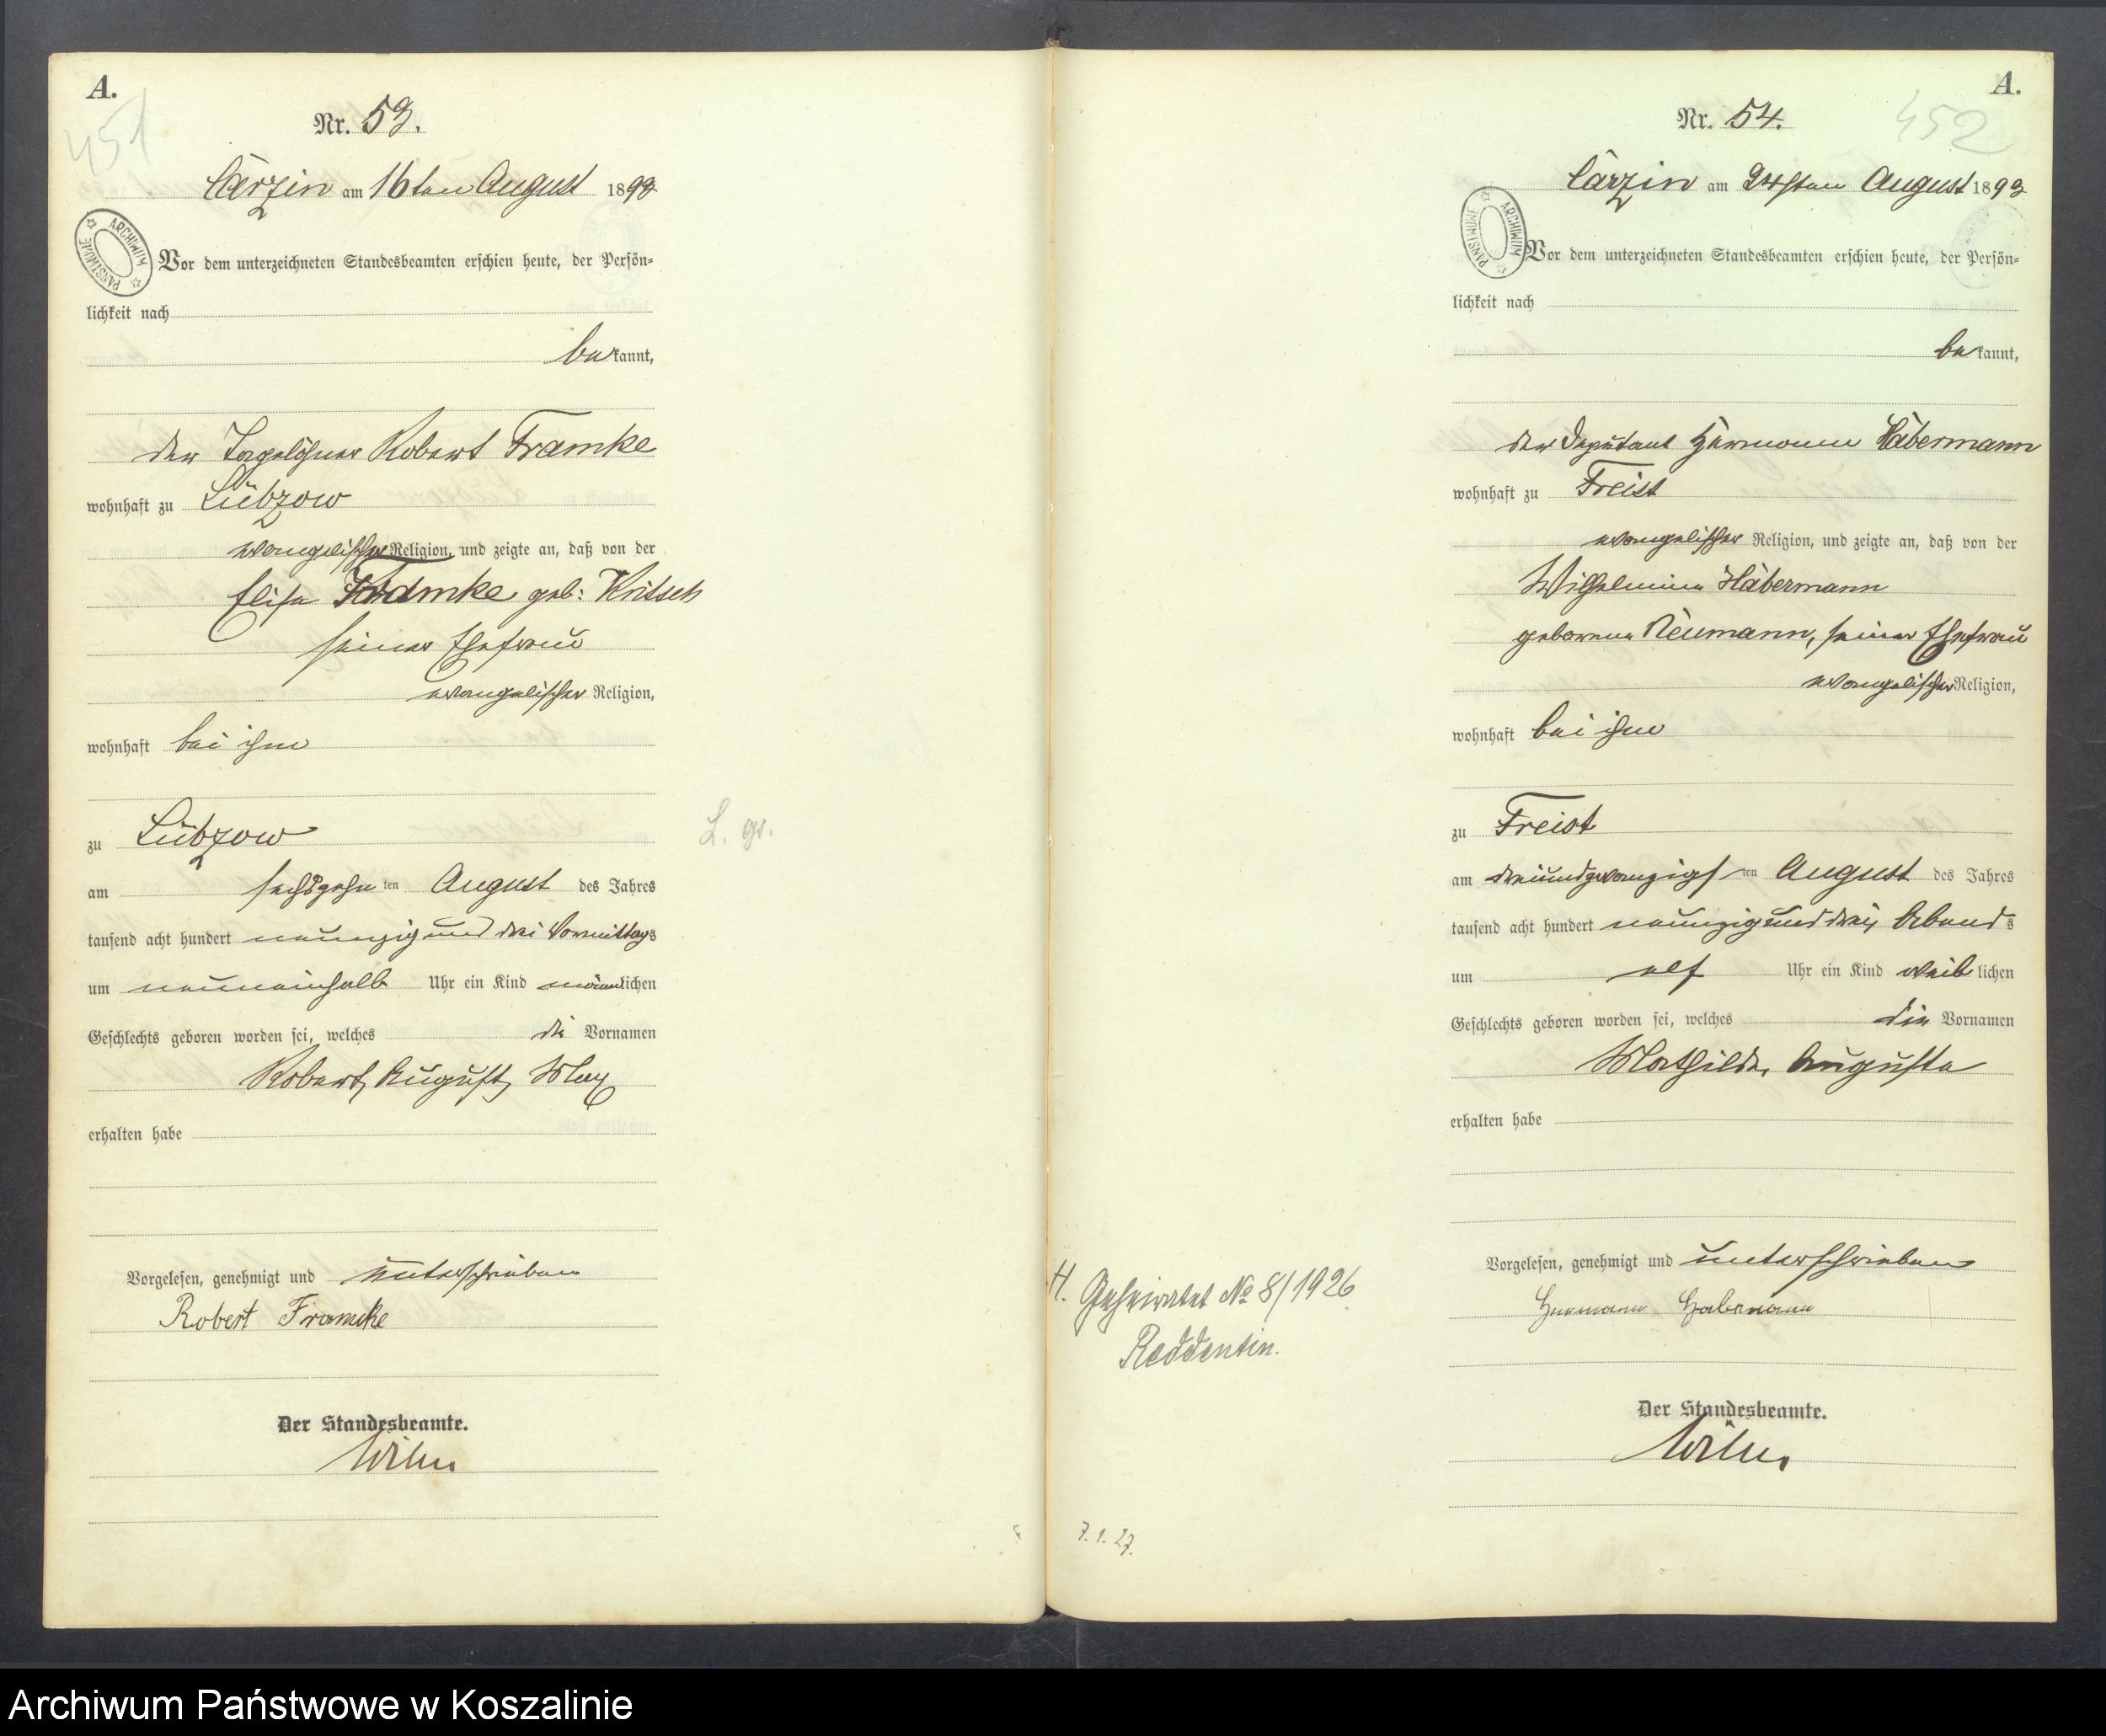 A.
451
Nr. 53.
Carzin am 16ten August 1893
ARCHIWUM PAŃSTWOWE
Vor dem unterzeichneten Standesbeamten erschien heute, der Persön-
lichkeit nach
bekannt,
der Tagelöhner Robert Framke
wohnhaft zu Lübzow
evangelischer Religion, und zeigte an, daß von der
Elise Framke geb: Kritsch
seiner Ehefrau
evangelischer Religion,
wohnhaft bei ihm
zu Lübzow
am sechszehnten August des Jahres
tausend acht hundert neunzig und drei Vormittags
um neuneinhalb Uhr ein Kind männlichen
Geschlechts geboren worden sei, welches die Vornamen
Robert, August, Max
erhalten habe
Vorgelesen, genehmigt und unterschrieben
Robert Framke
Der Standesbeamte.
L. gr.
A.
452
Nr. 54.
Carzin am 24sten August 1893
ARCHIWUM PAŃSTWOWE
Vor dem unterzeichneten Standesbeamten erschien heute, der Persön-
lichkeit nach
bekannt,
der Deputant Hermann Habermann
wohnhaft zu Freist
evangelischer Religion, und zeigte an, daß von der
Wilhelmine Habermann
geborene Neumann, seiner Ehefrau
evangelischer Religion,
wohnhaft bei ihm
zu Freist
am dreiundzwanzigsten August des Jahres
tausend acht hundert neunzig und drei, Abends
um elf Uhr ein Kind weiblichen
Geschlechts geboren worden sei, welches die Vornamen
Mathilde, Auguste
erhalten habe
Vorgelesen, genehmigt und unterschrieben
Hermann Habermann
Der Standesbeamte.
H. Geheiratet No 8/1926
Reddentin.
7.1.27.
Archiwum Państwowe w Koszalinie